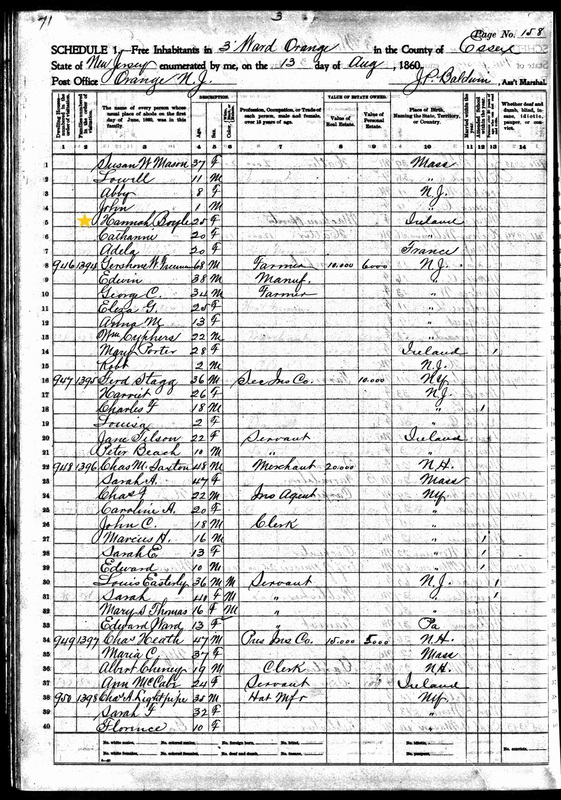 71
3
Page No. 158
SCHEDULE 1.—Free Inhabitants in 3d Ward Orange in the County of Essex
State of New Jersey enumerated by me, on the 13 day of Aug, 1860. J P Baldwin, Ass't Marshal.
Post Office Orange N.J.
DESCRIPTION. VALUE OF ESTATE OWNED.
The name of every person whose usual place of abode on the first day of June, 1860, was in this family.
Age. Sex.
Profession, Occupation, or Trade of each person, male and female, over 15 years of age.
Value of Real Estate. Value of Personal Estate.
Place of Birth, Naming the State, Territory, or Country.
Married within the year. Attended School within the year.
Whether deaf and dumb, blind, insane, idiotic, pauper, or convict.
1 2 3 4 5 6 7 8 9 10 11 12 13 14
1 Susan W Mason 37 F Mass
2 Lowell 11 M "
3 Abby 8 F N.J.
4 John 1 M "
5 Hannah Boyle 25 F Ireland
6 Catharine 20 F "
7 Adela 20 F France
8 946 1394 Gershom W 68 M Farmer 10.000 6000 N.J.
9 Edwin 38 M Manuf. "
10 George C. 34 M Farmer "
11 Eliza G. 25 F "
12 Anna M 13 F "
13 Wm Cyphers 22 M "
14 Mary Porter 28 F Ireland 1
15 Robt 2 M N.J.
16 947 1395 Ferd Stagg 36 M Sec Ins Co. 10.000 NY
17 Harriet 26 F N.J.
18 Charles F 18 M " 1
19 Louisa 2 F "
20 Jane Tilson 22 F Servant Ireland
21 Peter Beach 10 M " "
22 948 1396 Chas M. Saxton 48 M Merchant 20.000 N.H.
23 Sarah A. 47 F Mass
24 Chas 22 M Ins Agent NY.
25 Caroline A. 20 F "
26 John C. 18 M Clerk "
27 Marcius H. 16 M " 1
28 Sarah E 13 F " 1
29 Edward 10 M " 1
30 Louis Easterly 36 M M Servant N.J. 1
31 Sarah 40 F M " " 1
32 Mary S Thomas 16 F M " "
33 Edward Ward 13 F " Pa
34 949 1397 Chas Heath 47 M Pres Ins Co. 15.000 5.000 N.H.
35 Maria C. 37 F Mass
36 Albert Cheney 19 M Clerk N.H.
37 Ann McCabe 24 F Servant Ireland
38 950 1398 Chas A Lightpipe 35 M Hat Mfr NY.
39 Sarah F 32 F "
40 Florence 10 F "
No. white males, No. colored males, No. foreign born, No. blind,
No. white females, No. colored females, No. deaf and dumb, No. insane, No. idiotic, No. paupers, No. convicts,